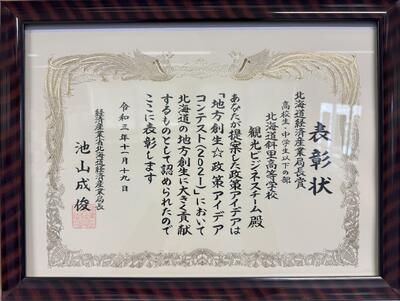 表彰状
北海道経済産業局長賞
高校生・中学生以下の部
北海道斜里高等学校
観光ビジネスチーム殿
あなたが提案した政策アイデアは
「地方創生☆政策アイデア
コンテスト（2021）」において
北海道の地方創生に大きく貢献
するものとして認められたので
ここに表彰します
令和三年十一月十九日
経済産業省北海道経済産業局長
池山成俊